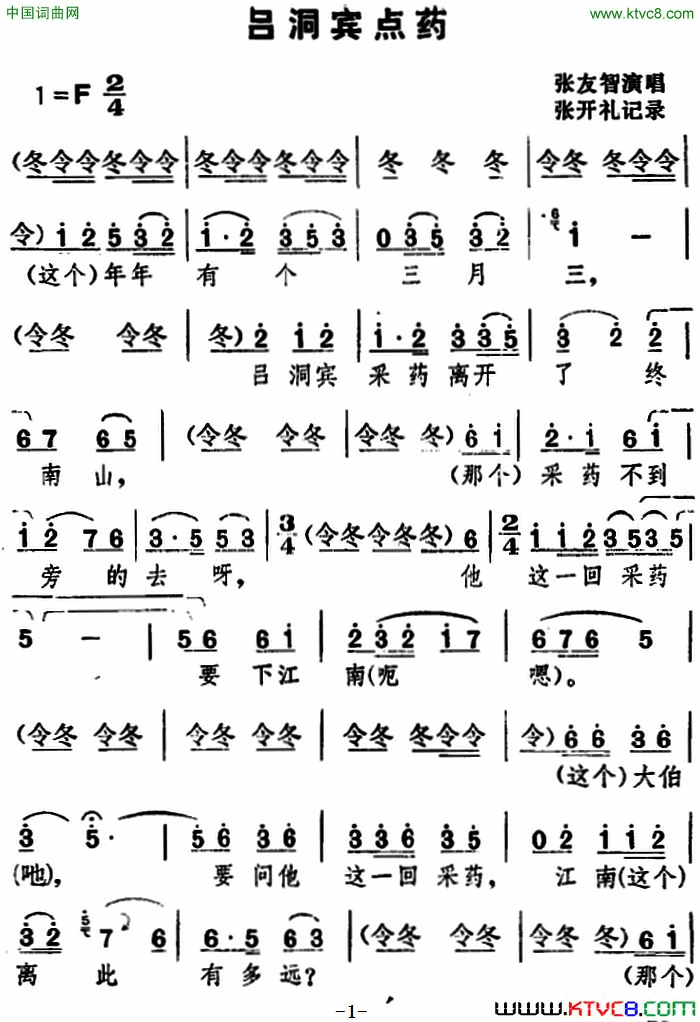 中国词曲网
www.ktvc8.com
吕洞宾点药
1=F 2/4
张友智演唱
张开礼记录
(冬令令冬令令 | 冬令令冬令令 | 冬 冬 冬 | 令冬 冬令令
令) i 2 5 3 2 | i·2 3 5 3 | 0 3 5 3 2 | i — |
(这个)年年 有 个 三 月 三,
(令冬 令冬 | 冬) 2 i 2 | i·2 3 3 5 | 3 2 2 |
吕 洞宾 采 药 离开 了 终
6 7 6 5 | (令冬 令冬 | 令冬 冬) 6 i | 2·i 6 i |
南 山, (那个) 采 药 不到
i 2 7 6 | 3·5 5 3 | 3/4 (令冬令冬冬) 6 | 2/4 i i 2 3 5 3 5 |
旁 的 去 呀, 他 这一回 采药
5 — | 5 6 6 i | 2 3 2 i 7 | 6 7 6 5 |
要 下江 南(呃 嗯)。
(令冬 令冬 | 令冬 令冬 | 令冬 冬令令 | 令) 6 6 3 6 |
(这个)大伯
3 5· | 5 6 3 6 | 3 3 6 3 5 | 0 2 i i 2 |
(吔), 要 问他 这一回 采药, 江 南(这个)
3 2 7 6 | 6·5 6 3 | (令冬 令冬 | 令冬 冬) 6 i |
离 此 有 多 远? (那个)
-1-
www.KTVC8.com